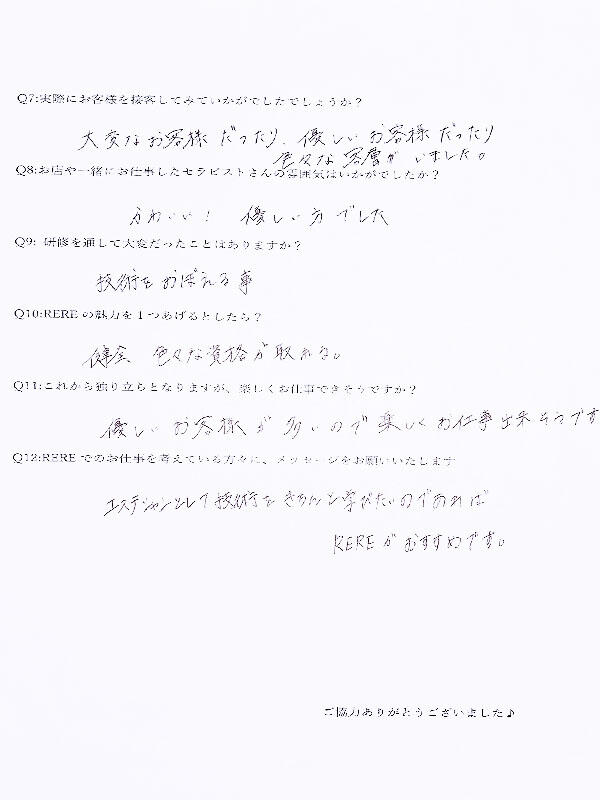 Q7:実際にお客様を接客してみていかがでしたでしょうか？
大変なお客様だったり、優しいお客様だったり
色々な客層がいました。
Q8:お店や一緒にお仕事したセラピストさんの雰囲気はいかがでしたか？
かわいい！ 優しい方でした
Q9: 研修を通して大変だったことはありますか？
技術をおぼえる事
Q10:REREの魅力を1つあげるとしたら？
健全 色々な資格が取れる。
Q11:これから独り立ちとなりますが、楽しくお仕事できそうですか？
優しいお客様が多いので楽しくお仕事出来そうです
Q12:REREでのお仕事を考えている方々に、メッセージをお願いいたします
エステシャンとして技術をきちんと学びたいのであれば
REREがおすすめです。
ご協力ありがとうございました♪